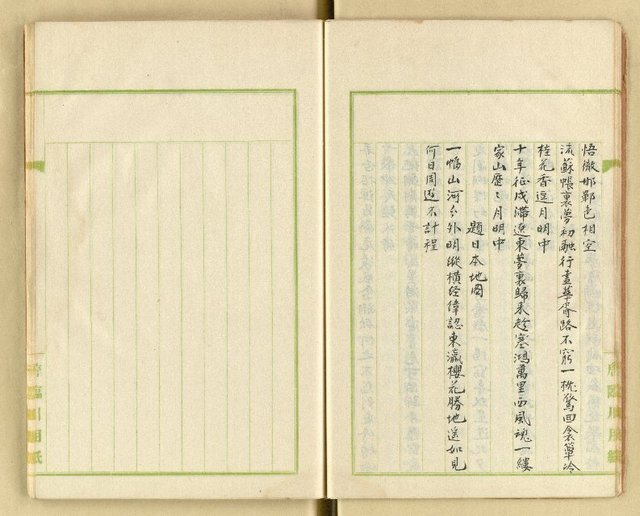 悟徹邯鄲色相空
流蘇帳裏夢初融行盡華胥路不窮一枕驚回衾簟冷
桂花香逗月明中
十年征戍滯遼東夢裏歸來趁塞鴻萬里西風魂一縷
家山歷〻月明中
題日本地圖
一幅山河分外明縱橫經緯認東瀛櫻花勝地遙如見
何日周遊不計程